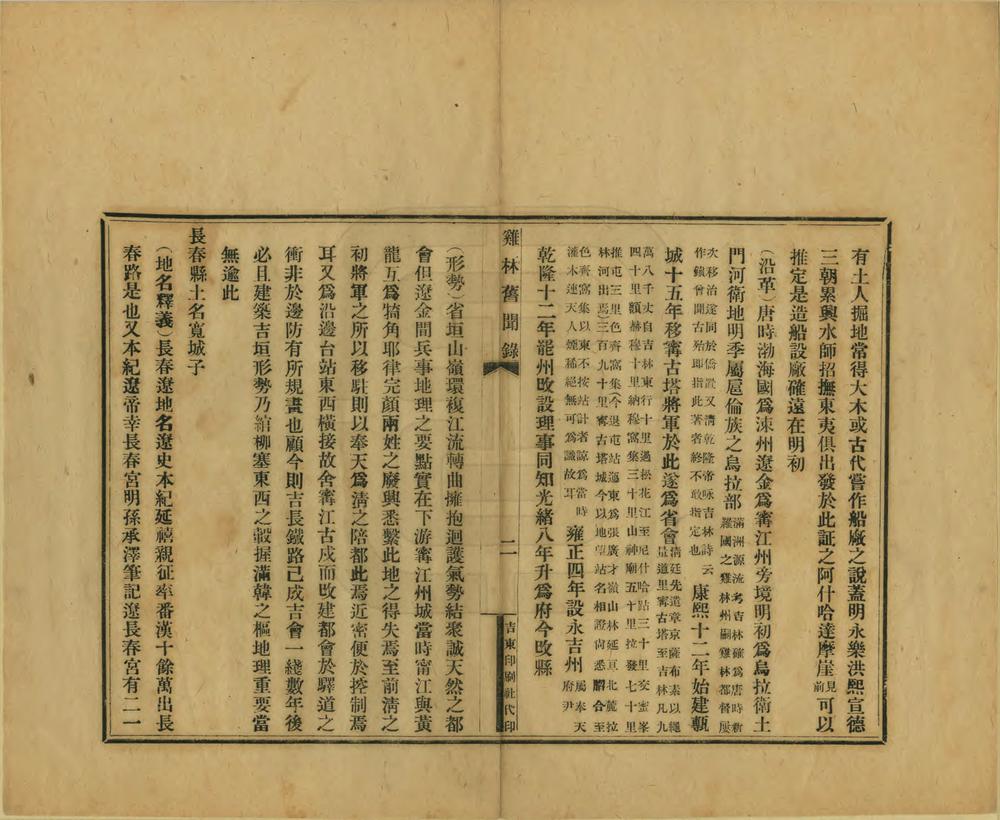 有土人掘地常得大木或古代嘗作船廠之說蓋明永樂洪熙宣德
三朝累興水師招撫東夷俱出發於此証之阿什哈達摩崖見前可以
推定是造船設廠確遠在明初
（沿革）唐時渤海國爲涑州遼金爲甯江州旁境明初爲烏拉衛土
門河衛地明季屬扈倫族之烏拉部滿洲源流考吉林雖爲唐時新羅國之雞林州嗣雞林都督屢
次移治遼同於僑置又清乾隆帝咏吉林詩云作鎮曾開古殆即指此著者終不敢指定也康熙十二年始建甎
城十五年移甯古塔將軍於此遂爲省會清廷先遣章京薩布素以繩量道里甯古塔至吉林凡九
萬八千丈自吉林東行十里過松花江至尼什哈站三十里交密峯四十里額赫穆十里納穆窩集三十里山神廟五十里拉發七十里
推屯三里色齊窩集今退屯站迤東爲張廣才嶺山林延亘北麓拉林河出焉三百九十里甯古塔城今以地望站名相證尚悉脗合至
色齊窩集以東不按站計者諒爲當時灌木連天人煙稀絕無可爲識故耳雍正四年設永吉州屬奉天府尹
乾隆十二年罷州改設理事同知光緒八年升爲府今改縣
雞林舊聞錄
二
吉東印刷社代印
（形勢）省垣山嶺環複江流轉曲擁抱迴護氣勢結聚誠天然之都
會但遼金間兵事地理之要點實在下游甯江州城當時甯江與黃
龍互爲犄角耶律完顏兩姓之廢興悉繫此地之得失焉至前淸之
初將軍之所以移駐則以奉天爲淸之陪都此焉近密便於控制焉
耳又爲沿邊台站東西橫接故舍甯江古戍而改建都會於驛道之
衝非於邊防有所規畫也顧今則吉長鐵路已成吉會一綫數年後
必且建築吉垣形勢乃綰柳塞東西之轂握滿韓之樞地理重要當
無逾此
長春縣土名寬城子
（地名釋義）長春遼地名遼史本紀延禧親征率番漢十餘萬出長
春路是也又本紀遼帝幸長春宮明孫承澤筆記遼長春宮有二一